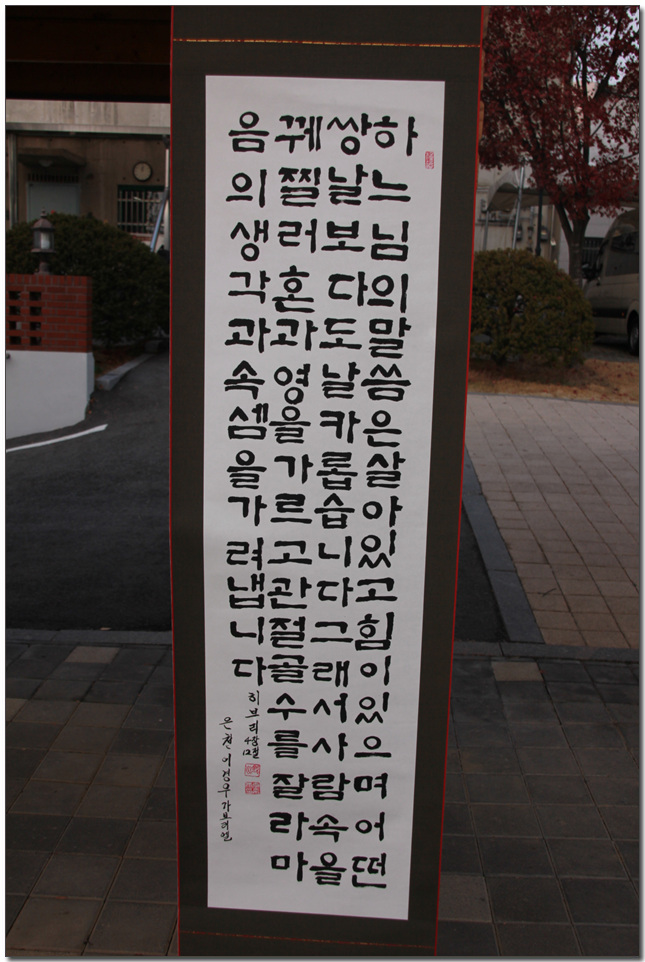 하느님의말씀은살아있고힘이있으며어떤
쌍날보다도날카롭습니다그래서사람속을
꿰찔러혼과영을가르고관절골수를잘라마
음의생각과속셈을가려냅니다
히브리4장12절
은천이경우가브리엘